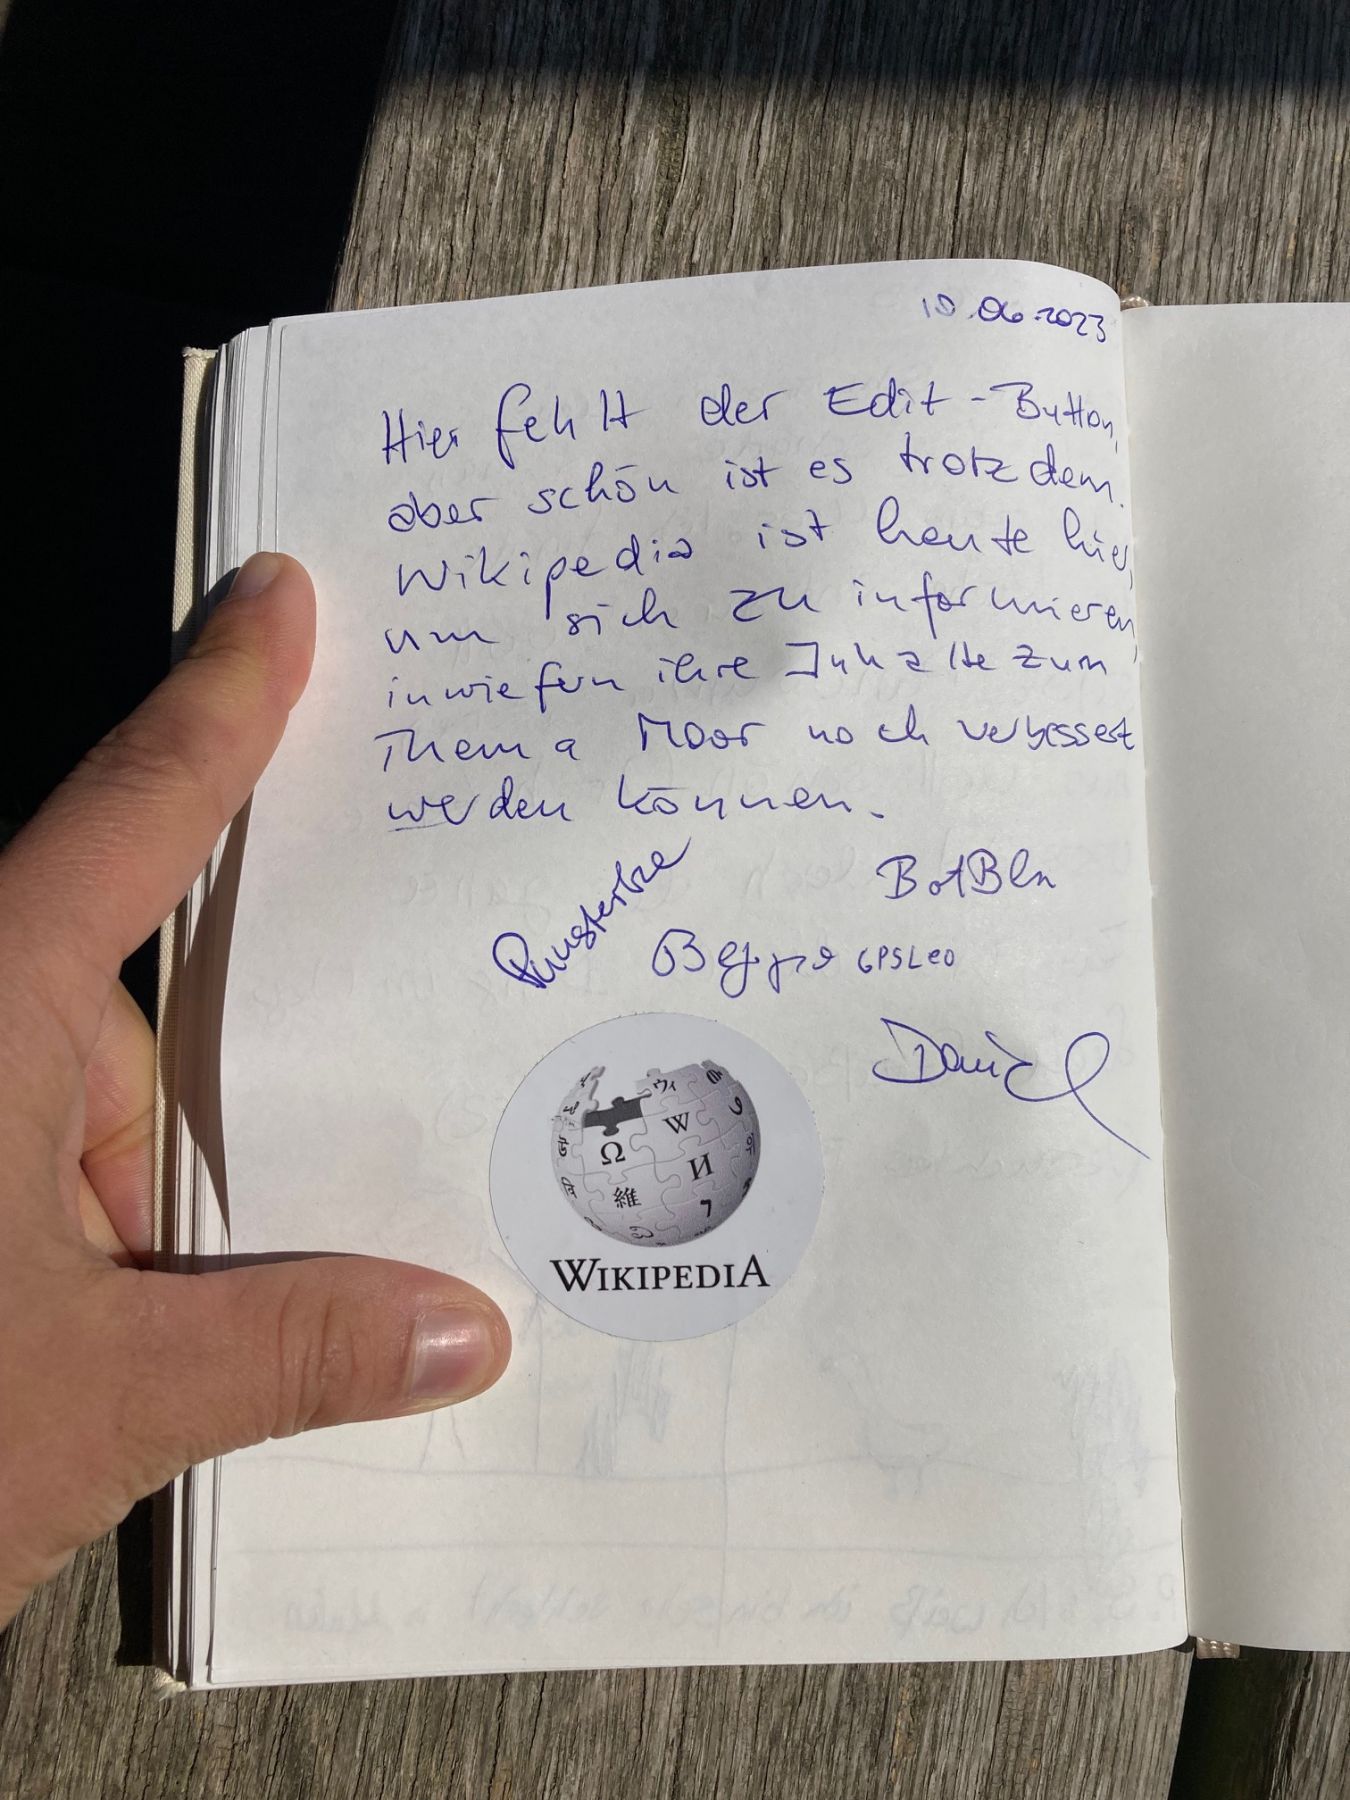 10.06.2023
Hier fehlt der Edit-Button,
aber schön ist es trotzdem.
Wikipedia ist heute hier,
um sich zu informieren,
inwiefern ihre Inhalte zum
Thema Moor noch verbessert
werden können.
BotBln
GPSLeo
Daniel
Ω W И 維 7 ウィ
WIKIPEDIA